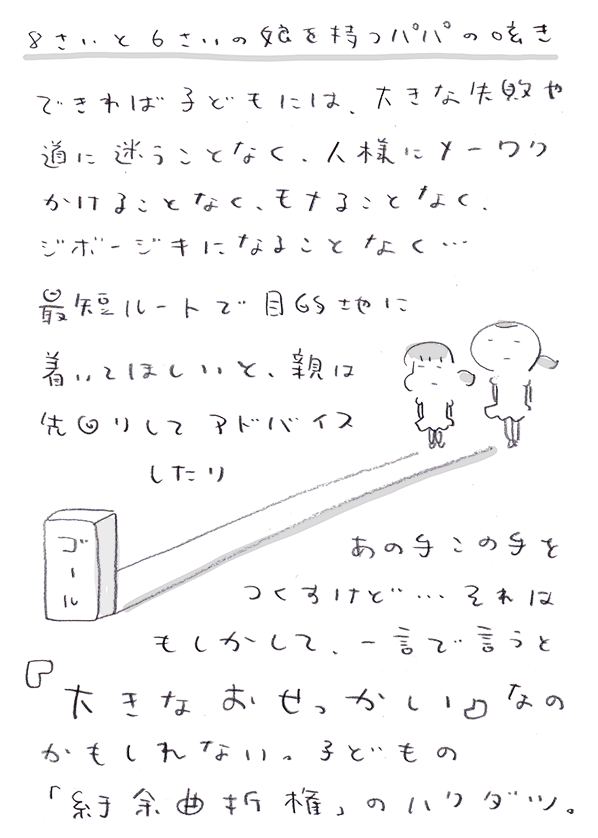 8さいと6さいの娘を持つパパの呟き
できれば子どもには、大きな失敗や
道に迷うことなく、人様にメーワク
かけることなく、モメることなく、
ジボージキになることなく…
最短ルートで目的地に
着いてほしいと、親は
先回りしてアドバイス
したり
ゴール
あの手この手を
つくすけど…それは
もしかして、一言で言うと
『大きなおせっかい』なの
かもしれない。子どもの
「紆余曲折権」のハクダツ。